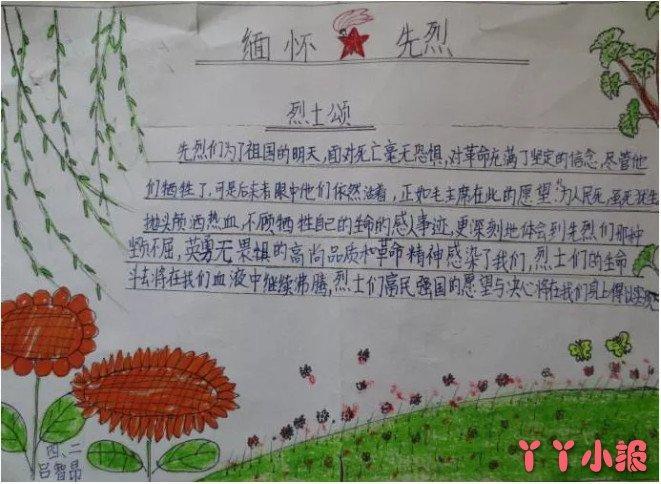 缅怀 先烈
烈士颂
先烈们为了祖国的明天,面对死亡毫无恐惧,对革命充满了坚定的信念,尽管他
们牺牲了,可是后来者眼中他们依然活着,正如毛主席在此的愿望:“为人民死,虽死犹生
抛头颅洒热血,不顾牺牲自己的生命的感人事迹,更深刻地体会到先烈们那种
坚贞不屈,英勇无畏惧的高尚品质和革命精神感染了我们,烈士们的生命
斗去将在我们血液中继续沸腾,烈士们富民强国的愿望与决心将在我们身上得以实现
四、二
吕智昂
丫丫小报